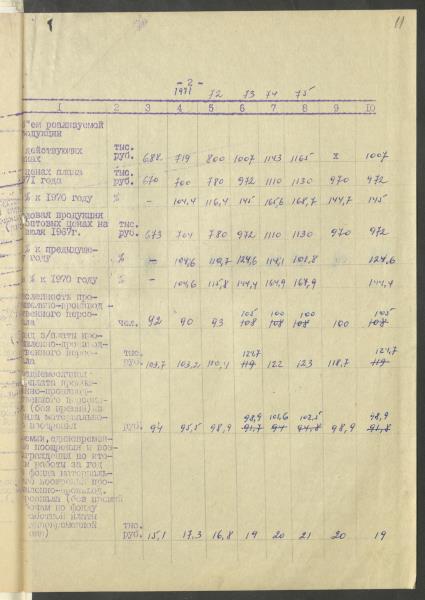 11
- 2 -
1971 72 73 74 75
1 2 3 4 5 6 7 8 9 10
ъем реализуемой
родукции
действующих тыс.
нах руб. 688 719 800 1007 1143 1165 х 1007
ценах плана тыс.
71 года руб. 670 700 780 972 1110 1130 970 972
% к 1970 году % - 104,4 116,4 145 165,6 168,7 144,7 145
овая продукция
оптовых ценах на тыс.
июля 1967г. руб. 673 704 780 972 1110 1130 970 972
% к предыдуще-
у году % - 104,6 110,7 124,6 114,1 101,8 124,6
% к 1970 году % - 104,6 115,8 144,4 164,9 167,9 144,4
исленность про-
мышленно-производ-
ственного персо- 105 100 100 105
ала чел. 92 90 93 108 108 108 100 108
нд з/платы про-
мышленно-производ-
ственного персо- тыс. 124,7 124,7
ала руб. 103,7 103,2 110,4 119 122 123 118,7 119
реднемесячная
рплата промы-
енно-производ-
твенного персона-
(без премии) из
нда материально-
о поощрения 98,9 101,6 102,5 98,9
руб. 94 95,5 98,9 91,7 94 94,8 98,9 91,8
ремии, единовремен-
поощрения и воз-
аграждения по ито-
м работы за год
фонда материаль-
го поощрения про-
ышленно-производ.
рсонала (без премий
бочим по фонду
аработной платы
тыс.
руб. 15,1 17,3 16,8 19 20 21 20 19